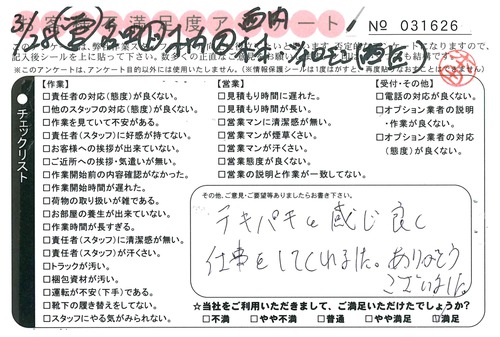 お客様満足度アンケート
№ 031626
記入後シールを上に貼って下さい。
※このアンケートは、アンケート目的以外には使用いたしません。(※情報保護シールは1度はがすと、再度貼りなおすことはできません)
チェックリスト
【作業】
□責任者の対応(態度)が良くない。
□他のスタッフの対応(態度)が良くない。
□作業を見ていて不安がある。
□責任者(スタッフ)に好感が持てない。
□お客様への挨拶が出来ていない。
□ご近所への挨拶・気遣いが無い。
□作業開始前の内容確認がなかった。
□作業開始時間が遅れた。
□荷物の取り扱いが雑である。
□お部屋の養生が出来ていない。
□作業時間が長すぎる。
□責任者(スタッフ)に清潔感が無い。
□責任者(スタッフ)が汗くさい。
□トラックが汚い。
□梱包資材が汚い。
□運転が不安(下手)である。
□靴下の履き替えをしてない。
□スタッフにやる気がみられない。
【営業】
□見積もり時間に遅れた。
□見積もり時間が長い。
□営業マンに清潔感が無い。
□営業マンが煙草くさい。
□営業マンが汗くさい。
□営業態度が良くない。
□営業の説明と作業が一致してない。
【受付・その他】
□電話の対応が良くない。
□オプション業者の説明
・作業が良くない。
□オプション業者の対応
(態度)が良くない。
その他、ご意見・ご要望等ありましたらお書き下さい。
テキパキと感じ良く
仕事をしてくれました。ありがとう
ございました
☆当社をご利用いただきまして、ご満足いただけたでしょうか?
□不満 □やや不満 □普通 □やや満足 ☑満足